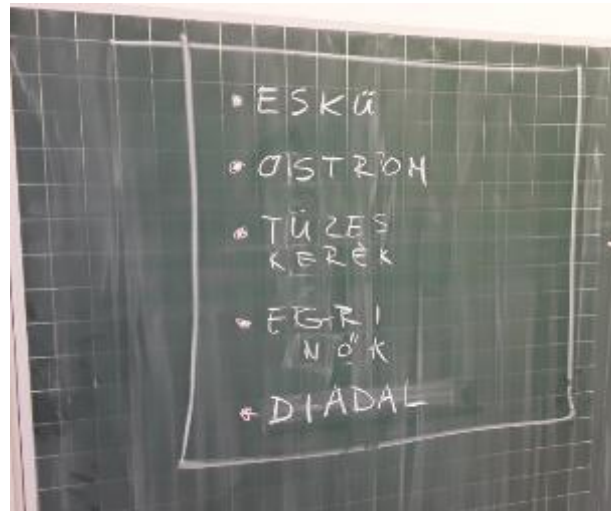 • ESKÜ
• OSTROM
• TÜZES
KEREK
• EGRI
NŐK
• DIADAL